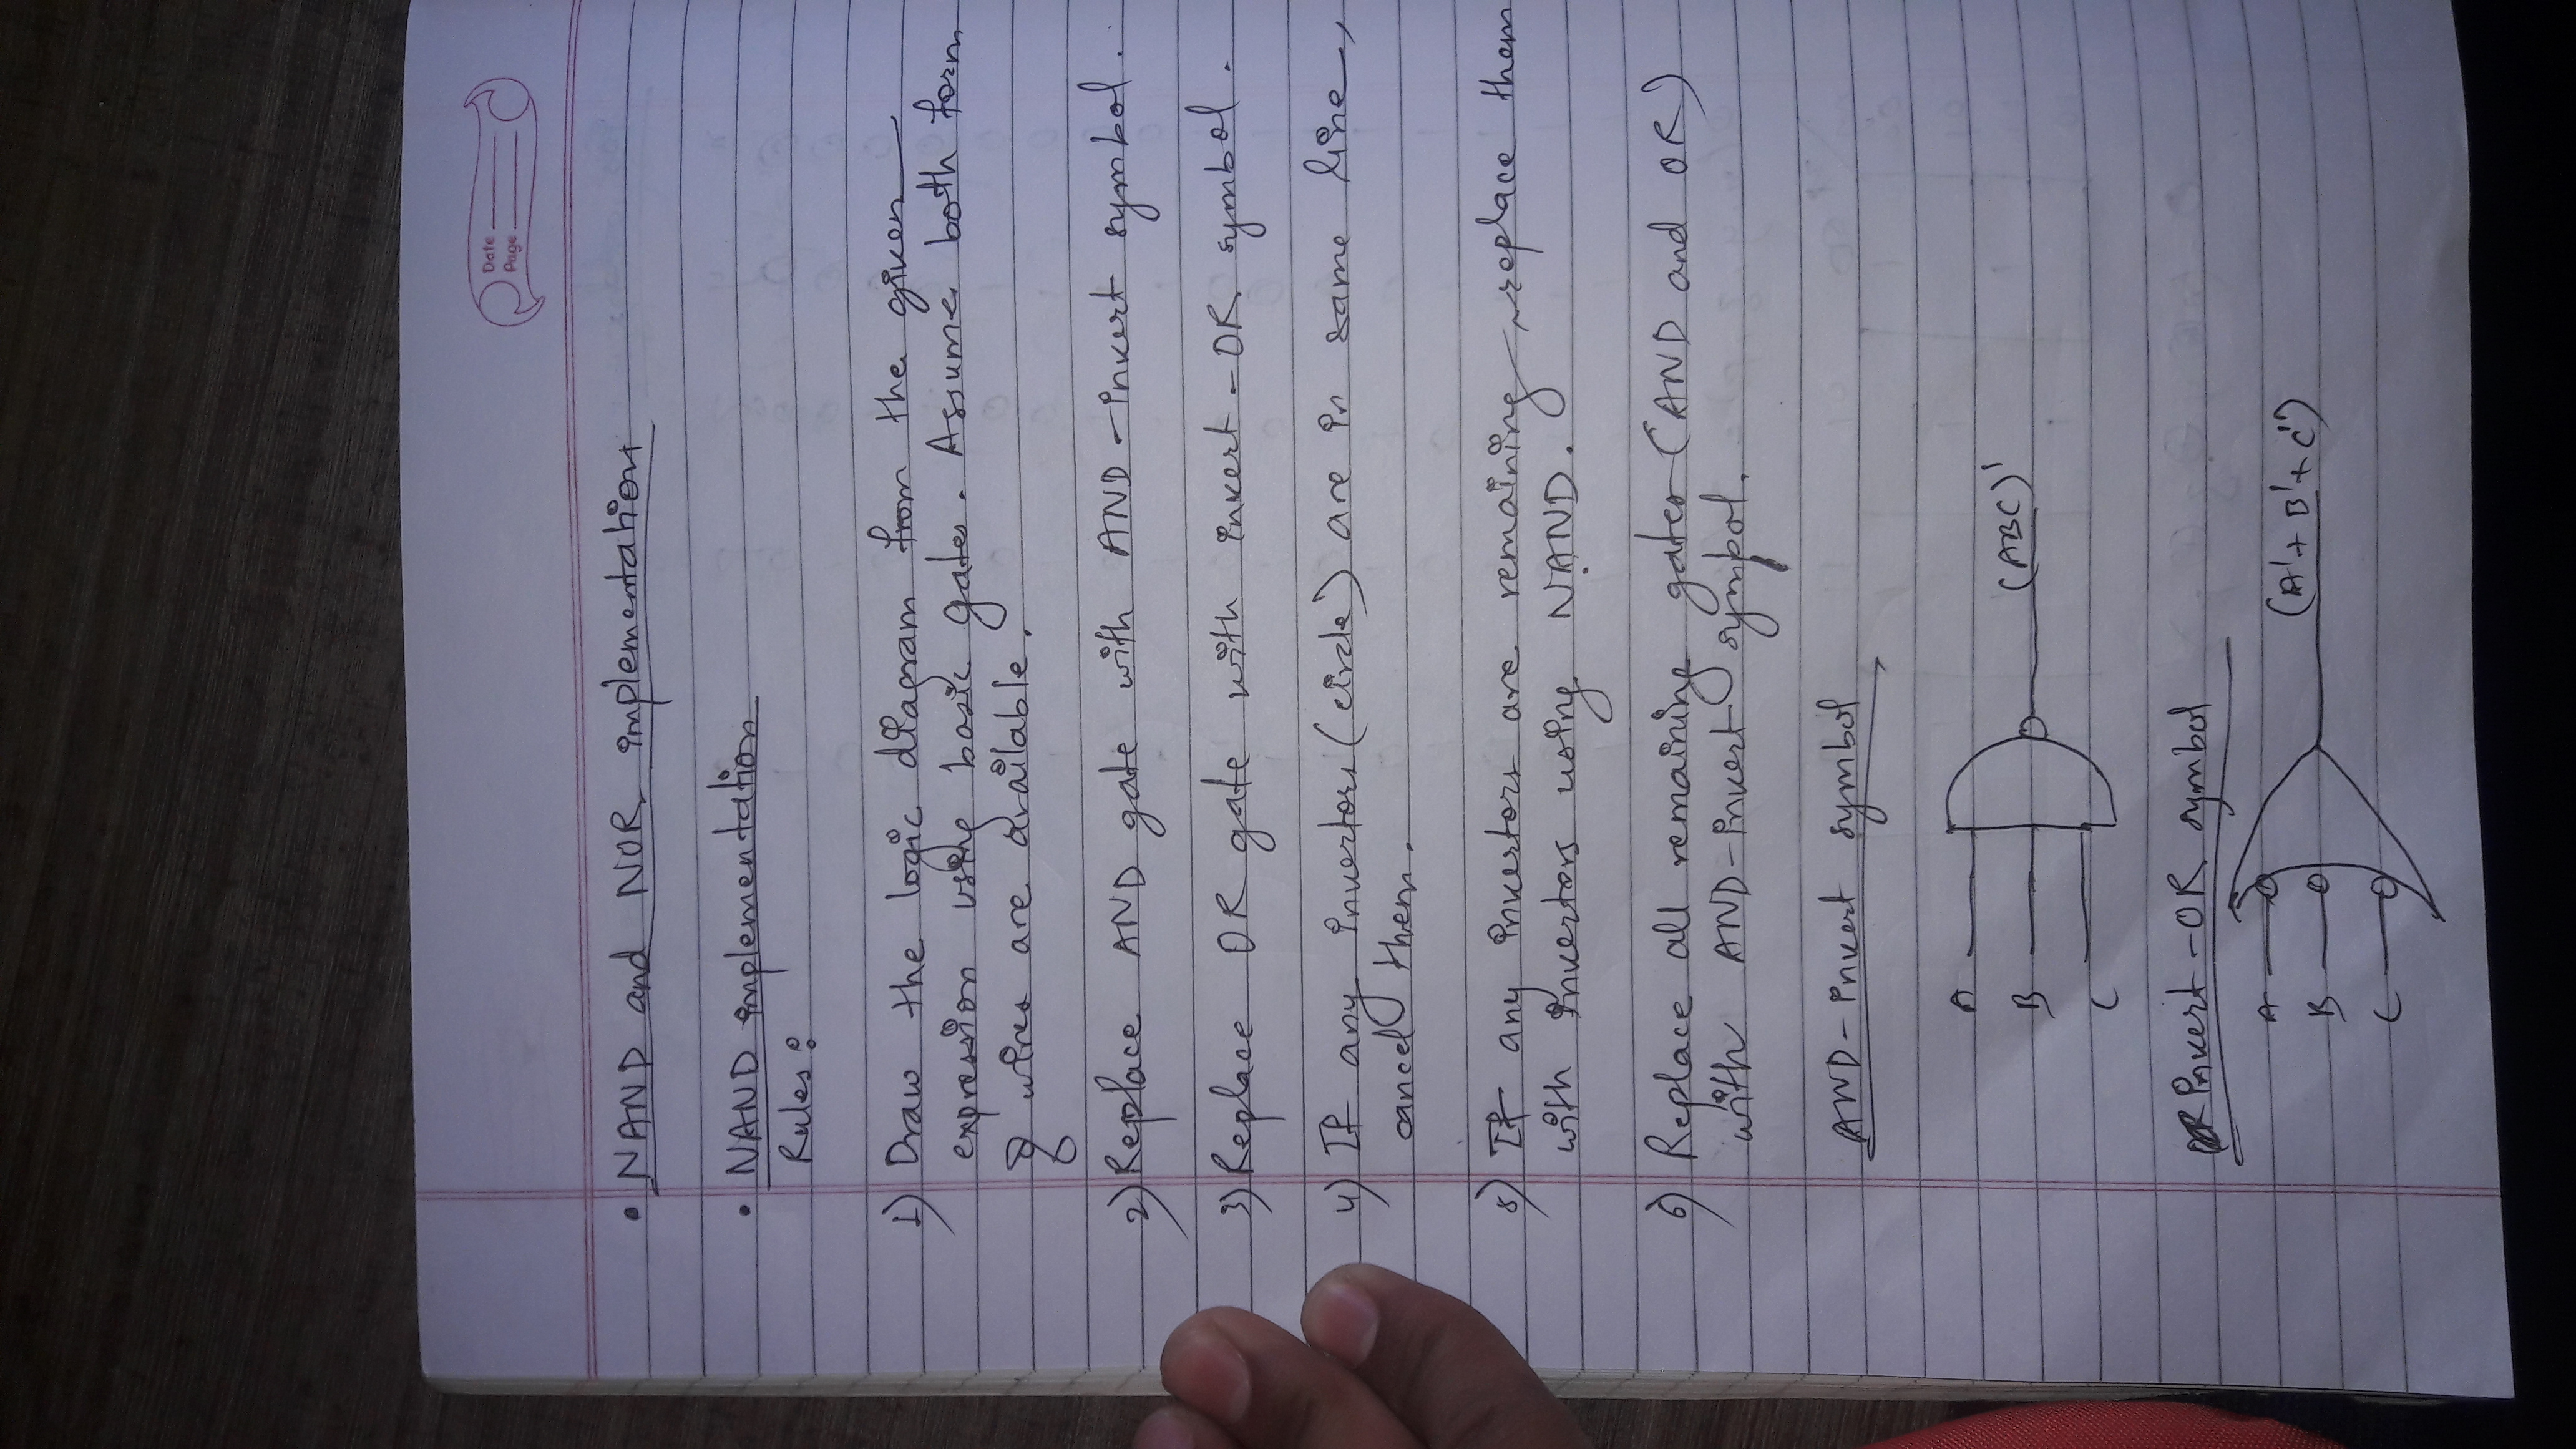 Date
Page
• NAND and NOR implementation
• NAND implementation
Rules:
1) Draw the logic diagram from the given
expression using basic gates. Assume both form
of wires are available.
2) Replace AND gate with AND-invert symbol.
3) Replace OR gate with invert-OR symbol.
4) If any invertors (circle) are in same line,
cancel them.
5) If any invertors are remaining replace them
with invertors using NAND.
6) Replace all remaining gates (AND and OR)
with AND-invert symbol.
AND-invert symbol
A
B
C
(ABC)'
invert-OR symbol
A
B
C
(A'+B'+C')